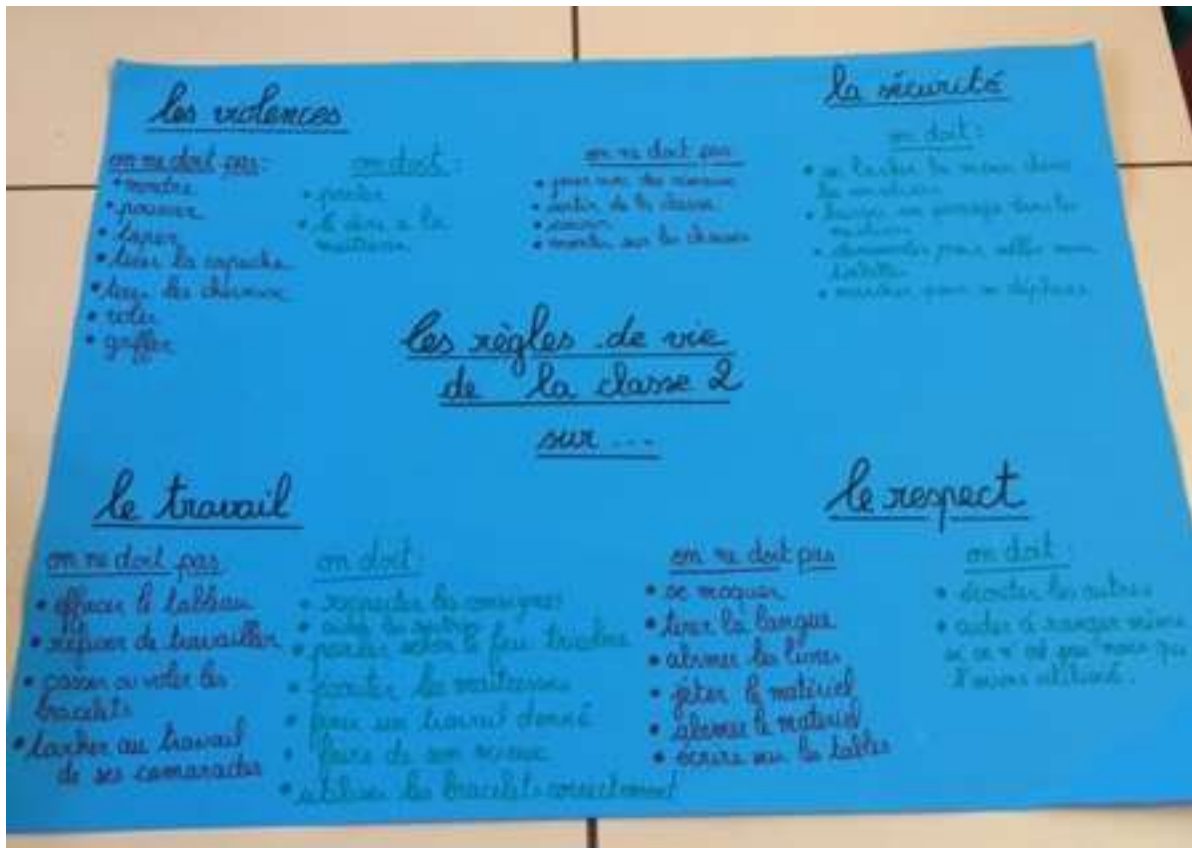 les violences
on ne doit pas:
• mordre
• pousser
• taper
• tirer la capuche
• tirer les cheveux
• voler
• griffer
on doit:
• parler
• le dire a la
maîtresse
la sécurité
on ne doit pas
• jouer avec des ciseaux
• sortir de la classe
• courir
• monter sur les chaises
on doit:
• se
les
• un passage dans les
• demander pour aller aux
toilettes
• marcher pour se déplacer
les règles de vie
de la classe 2
sur ...
le travail
on ne doit pas
• effacer le tableau
• refuser de travailler
• casser ou voler les
bracelets
• toucher au travail
de ses camarades
on doit:
• respecter les consignes
• aider les autres
• parler selon le feu tricolore
• écouter les maîtresses
• un travail donné
• faire de son mieux
• utiliser les bracelets correctement
le respect
on ne doit pas
• se moquer
• tirer la langue
• abimer les livres
• jeter le matériel
• abimer le matériel
• écrire sur les tables
on doit:
• écouter les autres
• aider à ranger même
si ce n'est pas nous qui
l'avons utilisé.